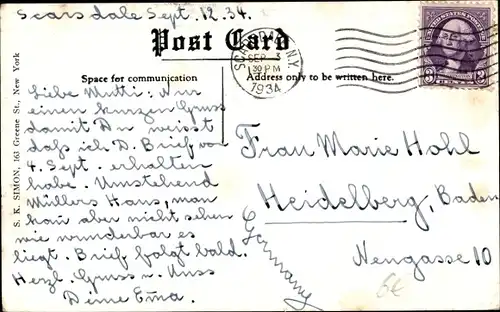 Scarsdale Sept. 12. 34.
Post Card
Space for communication
Address only to be written here.
SCARSDALE N.Y.
SEP
1934
UNITED STATES POSTAGE
3 3
S. K. SIMON, 163 Greene St., New York
Liebe Mutti: Nur
einen kurzen Gruss
damit Du weisst
dass ich D. Brief vom
4. Sept. erhalten
habe. Umstehend
Müllers Haus, man
kann aber nicht sehen
wie wunderbar es
liegt. Brief folgt bald.
Herzl. Gruss u. Kuss
Deine Erna.
Frau Marie Hohl
Heidelberg, Baden
Neugasse 10
Germany
6€